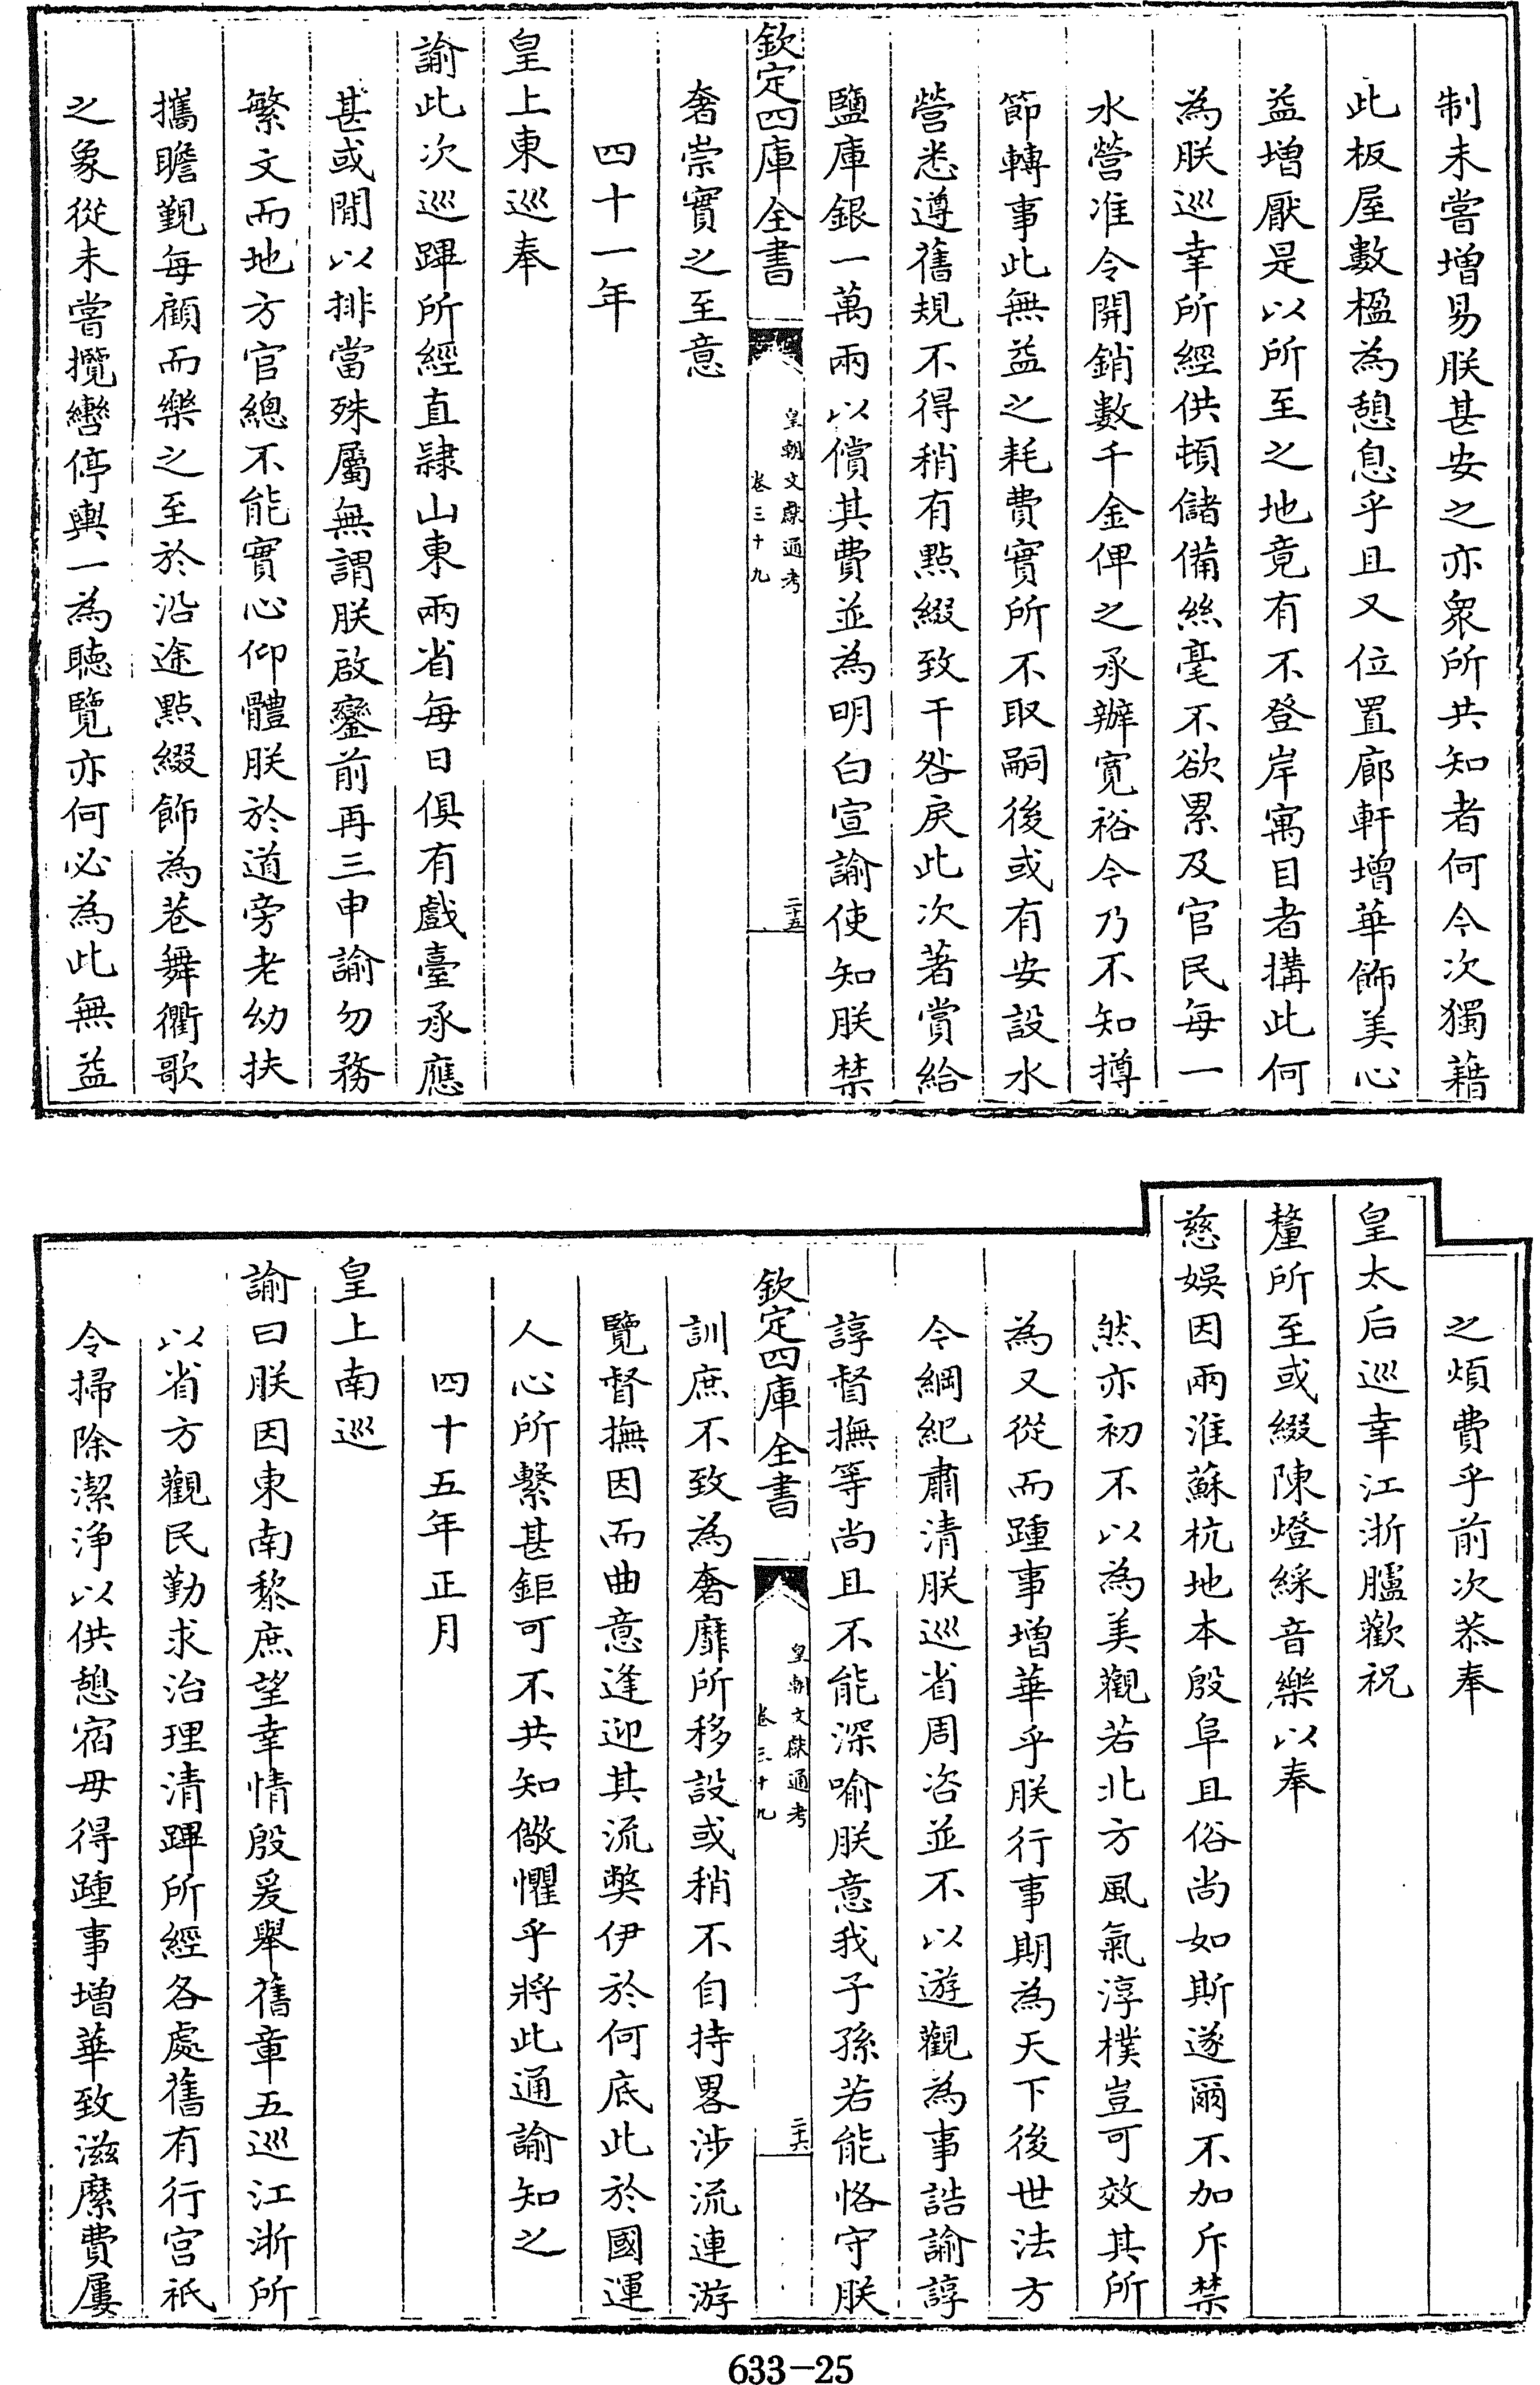 制未嘗增易朕甚安之亦衆所共知者何今次獨藉
此板屋數楹為憩息乎且又位置廊軒增華飾美心
益增厭是以所至之地竟有不登岸寓目者搆此何
為朕巡幸所經供頓儲備絲毫不欲累及官民每一
水營准令開銷數千金俾之承辦寛裕今乃不知撙
節轉事此無益之耗費實所不取嗣後或有安設水
營悉遵舊規不得稍有點綴致干咎戾此次著賞給
鹽庫銀一萬兩以償其費並為明白宣諭使知朕禁
欽定四庫全書
皇朝文獻通考
卷三十九
二十五
奢崇實之至意
四十一年
皇上東巡奉
諭此次巡蹕所經直隸山東兩省每日俱有戲臺承應
甚或間以排當殊屬無謂朕啟鑾前再三申諭勿務
繁文而地方官總不能實心仰體朕於道旁老幼扶
攜瞻觐每顧而樂之至於沿途點綴飾為巷舞衢歌
之象從未嘗攬轡停輿一為聽覽亦何必為此無益
之煩費乎前次恭奉
皇太后巡幸江浙臚歡祝
釐所至或綴陳燈綵音樂以奉
慈娛因兩淮蘇杭地本殷阜且俗尚如斯遂爾不加斥禁
然亦初不以為美觀若北方風氣淳樸豈可效其所
為又從而踵事增華乎朕行事期為天下後世法方
今綱紀肅清朕巡省周咨並不以遊觀為事誥諭諄
諄督撫等尚且不能深喻朕意我子孫若能恪守朕
欽定四庫全書
皇朝文獻通考
卷三十九
二十六
訓庶不致為奢靡所移設或稍不自持畧涉流連游
覽督撫因而曲意逢迎其流弊伊於何底此於國運
人心所繫甚鉅可不共知儆懼乎將此通諭知之
四十五年正月
皇上南巡
諭曰朕因東南黎庶望幸情殷爰舉舊章五巡江浙所
以省方觀民勤求治理清蹕所經各處舊有行宮祇
令掃除潔淨以供憩宿毋得踵事增華致滋縻費屢
633-25